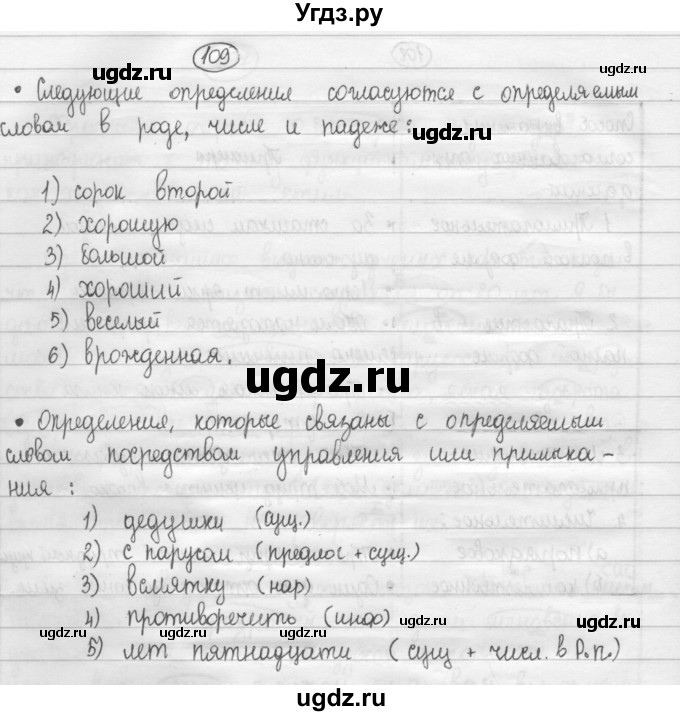 Угдз.ру
109
ugdz.ru ugdz.ru
• Следующие определения согласуются с определяемым
словом в роде, числе и падеже:
1) сорок второй
2) хорошую
3) большой
4) хороший
5) веселый
6) врожденная.
ugdz.ru
• Определения, которые связаны с определяемым
словом посредством управления или примыка-
ния:
1) дедушки (сущ.)
2) с парусом (предлог + сущ.)
3) всмятку (нар)
4) противоречить (инф)
5) лет пятнадцати (сущ + числ. в Р.п.)
ugdz.ru ugdz.ru
ugdz.ru ugdz.ru
ugdz.ru ugdz.ru
ugdz.ru